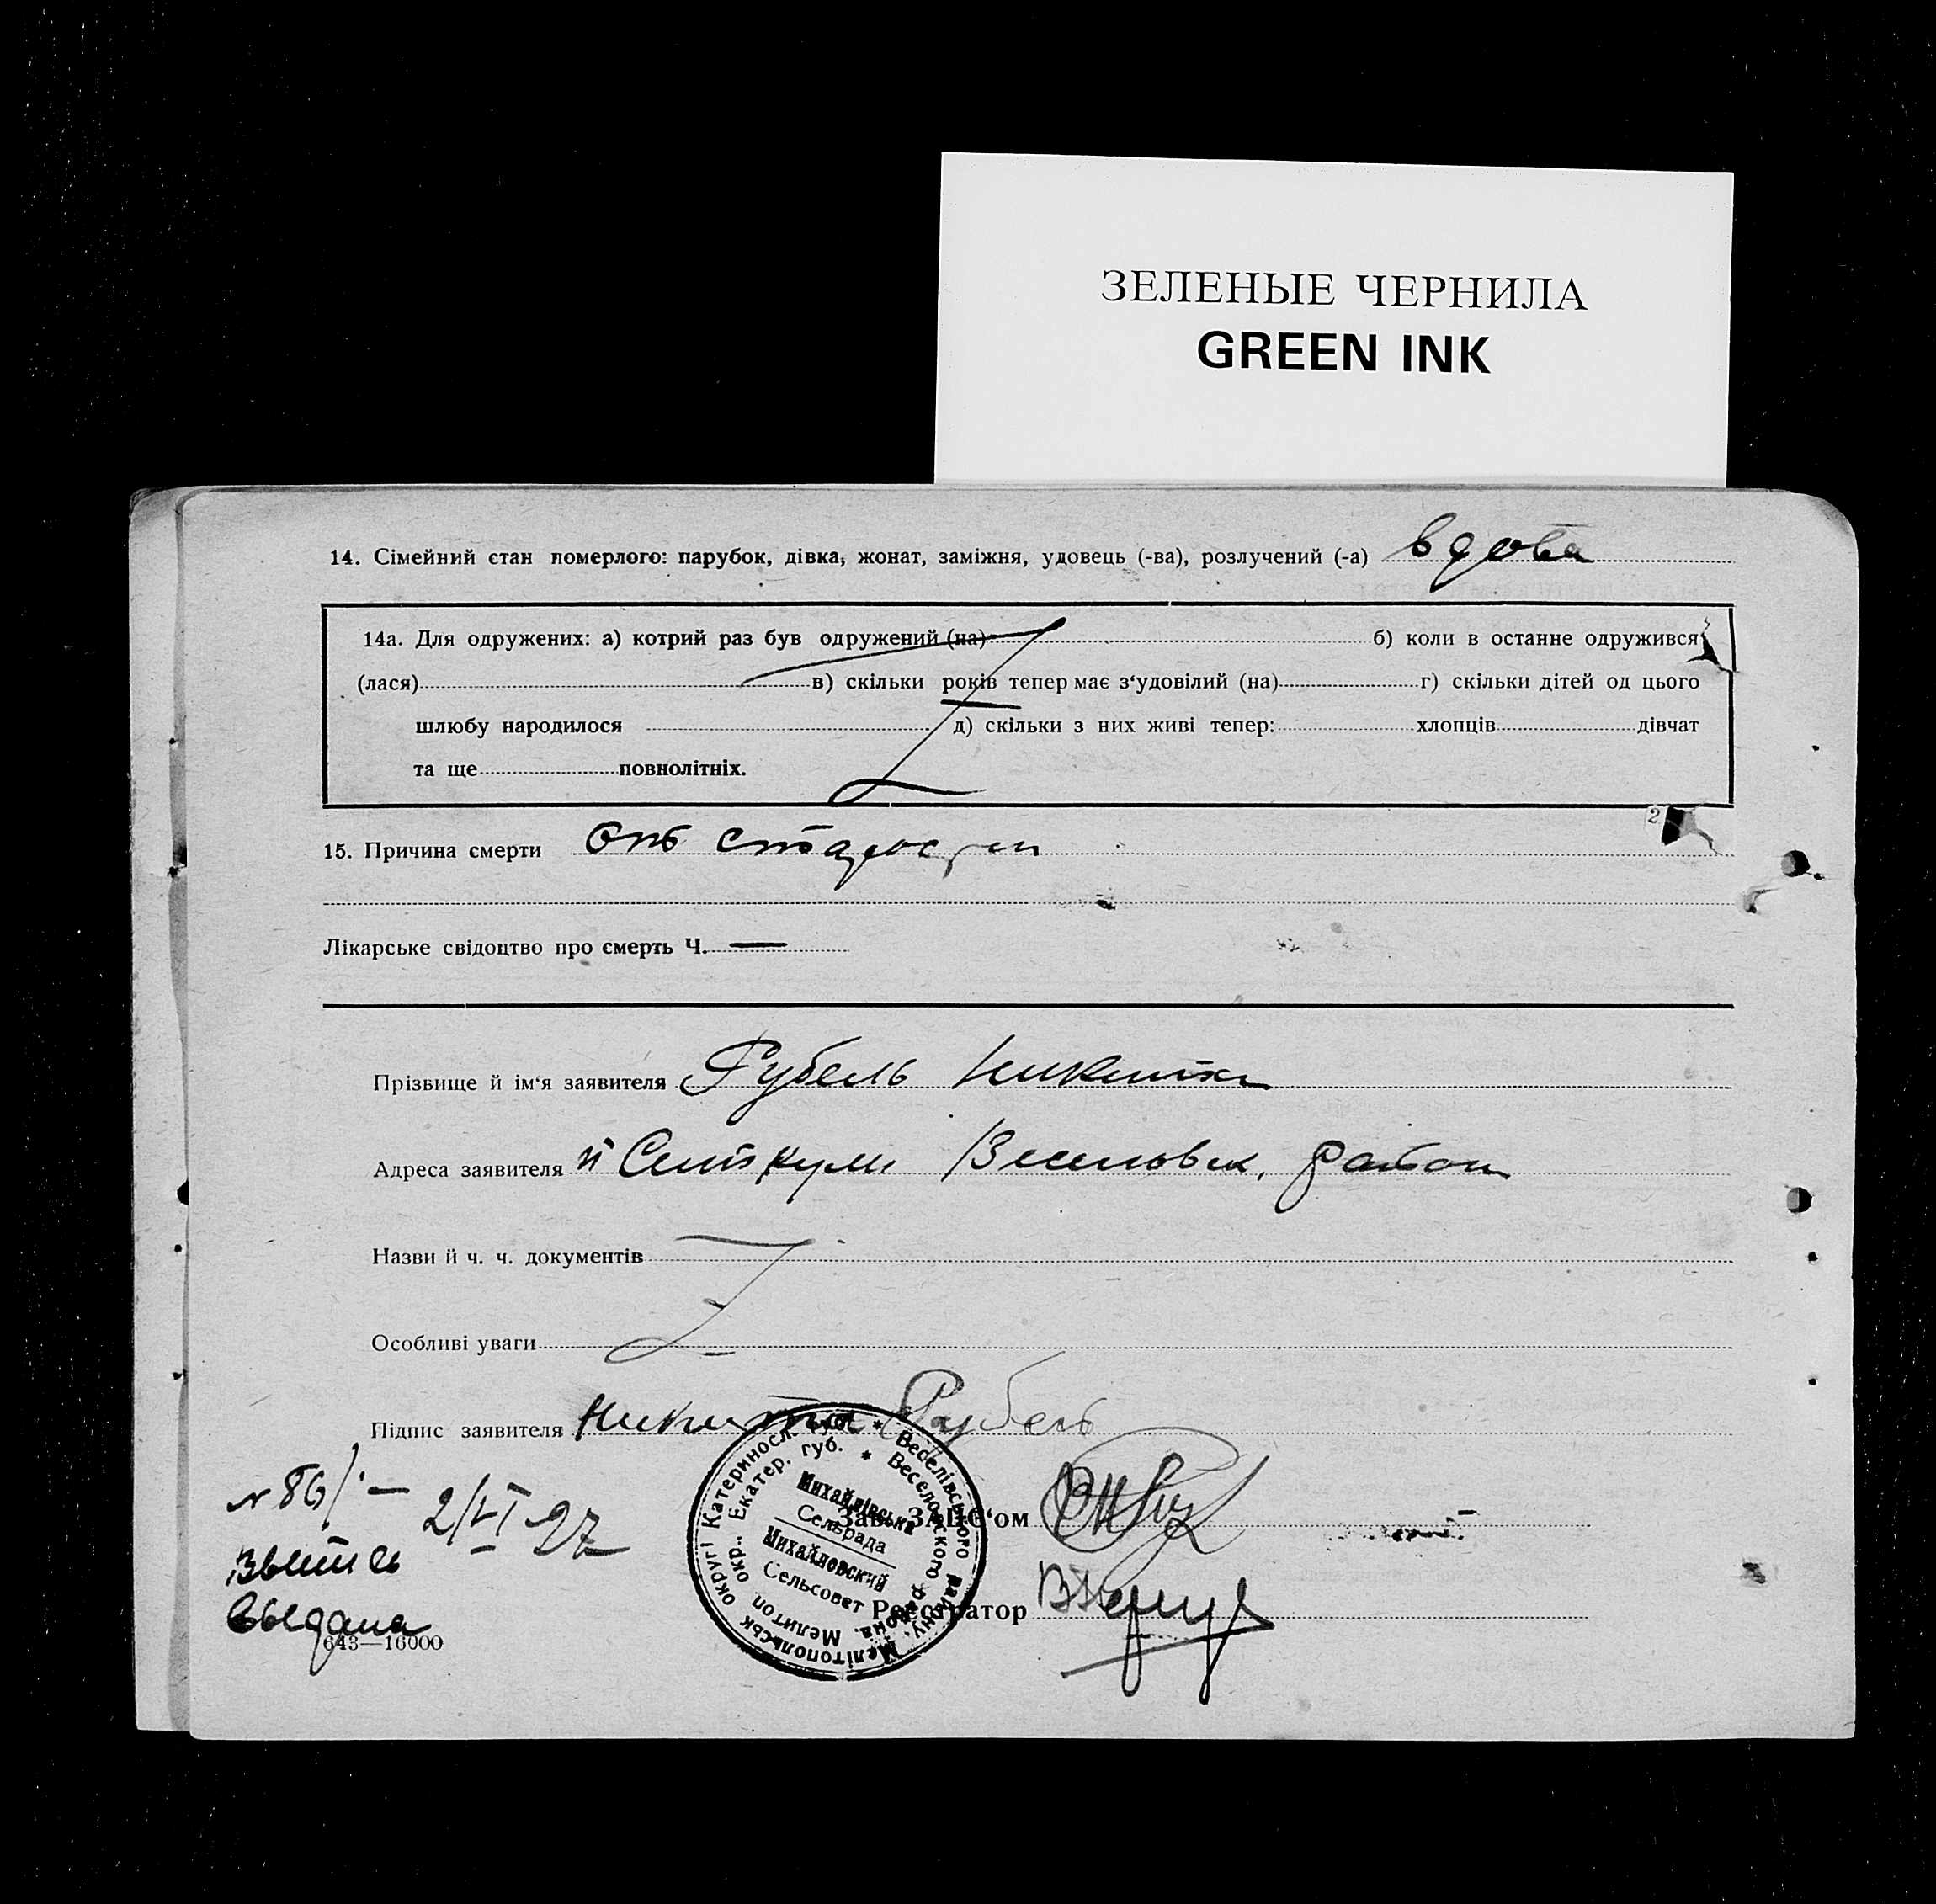 ЗЕЛЕНЫЕ ЧЕРНИЛА
GREEN INK
14. Сімейний стан померлого: парубок, дівка, жонат, заміжня, удовець (-ва), розлучений (-а) вдова
14а. Для одружених: а) котрий раз був одружений (на) б) коли в останнє одружився
(лася) в) скільки років тепер має з'удовілий (на) г) скільки дітей од цього
шлюбу народилося д) скільки з них живі тепер: хлопців дівчат
та ще повнолітніх.
2
15. Причина смерти отъ старости
Лікарське свідоцтво про смерть Ч. —
Прізвище й ім'я заявителя Рубель Никита
Адреса заявителя Веселовск. район
Назви й ч. ч. документів
Особливі уваги
Підпис заявителя Никита Рубель
N 86/ — 2/VI 27
Выпись
выдана
Зав. ЗАГС'ом
Реєстратор
Веселівського району, Мелітопольськ округі Катериносл. губ.
Веселовского района, Мелитоп окр., Екатер. губ.
Михайлівська
Сельрада
Михайловский
Сельсовет
643—16000